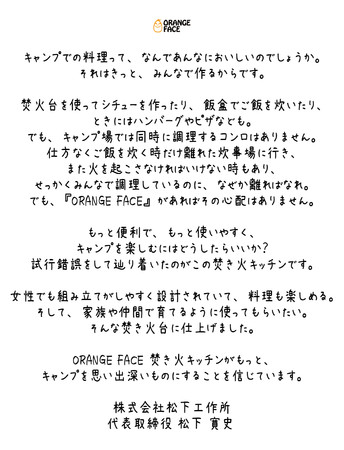 ORANGE
FACE
キャンプでの料理って、なんであんなにおいしいのでしょうか。
それはきっと、みんなで作るからです。
焚火台を使ってシチューを作ったり、飯盒でご飯を炊いたり、
ときにはハンバーグやピザなども。
でも、キャンプ場では同時に調理するコンロはありません。
仕方なくご飯を炊く時だけ離れた炊事場に行き、
また火を起こさなければいけない時もあり、
せっかくみんなで調理しているのに、なぜか離ればなれ。
でも、『ORANGE FACE』があればその心配はありません。
もっと便利で、もっと使いやすく、
キャンプを楽しむにはどうしたらいいか?
試行錯誤をして辿り着いたのがこの焚き火キッチンです。
女性でも組み立てがしやすく設計されていて、料理も楽しめる。
そして、家族や仲間で育てるように使ってもらいたい。
そんな焚き火台に仕上げました。
ORANGE FACE 焚き火キッチンがもっと、
キャンプを思い出深いものにすることを信じています。
株式会社松下工作所
代表取締役 松下 寛史